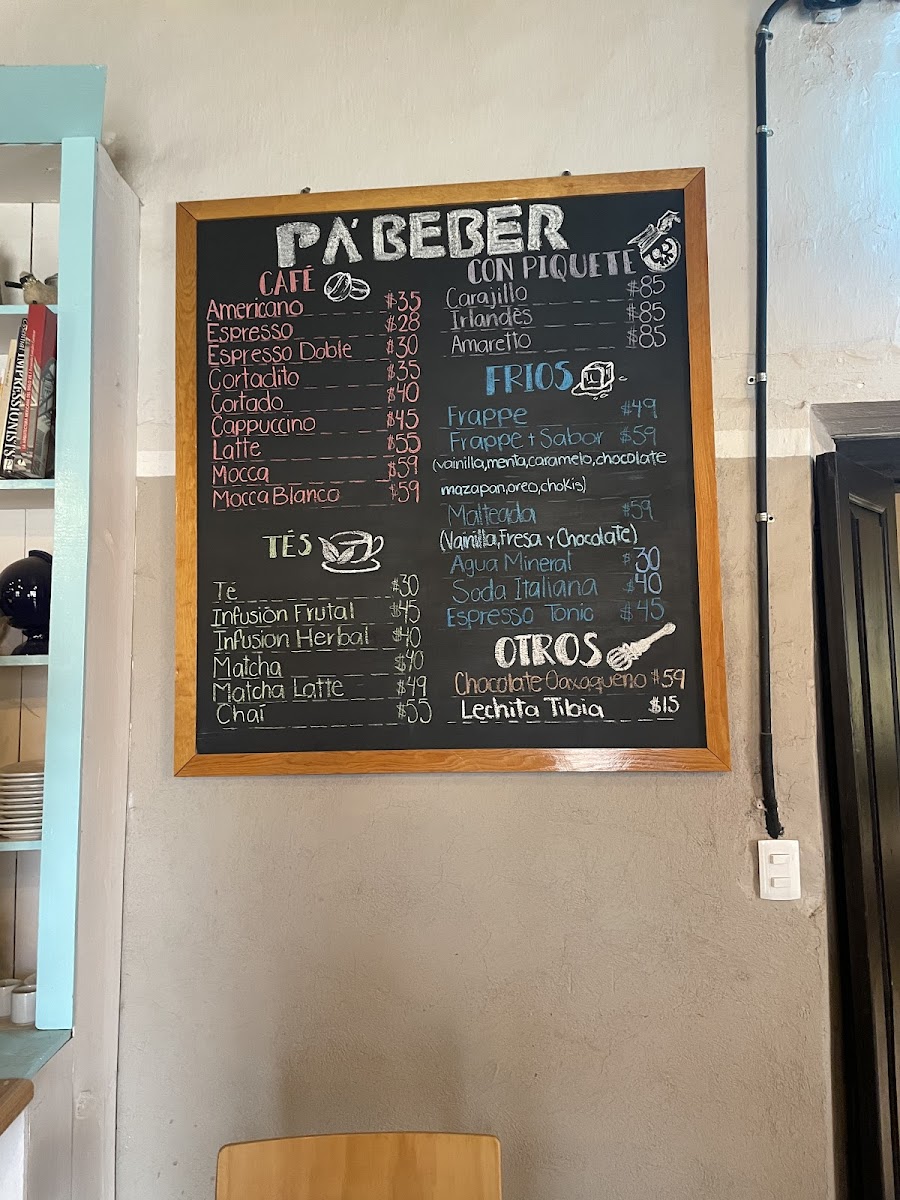 PA´BEBER
CAFÉ
Americano $35
Espresso $28
Espresso Doble $30
Cortadito $35
Cortado $40
Cappuccino $45
Latte $55
Mocca $59
Mocca Blanco $59
TÉS
Té $30
Infusión Frutal $45
Infusion Herbal $40
Matcha $40
Matcha Latte $49
Chaí $55
CON PIQUETE
Carajillo $85
Irlandés $85
Amaretto $85
FRIOS
Frappe $49
Frappe + Sabor $59
(vainilla,menta,caramelo,chocolate
mazapan,oreo,chokis)
Malteada $59
(Vainilla,Fresa y Chocolate)
Agua Mineral $30
Soda Italiana $40
Espresso Tonic $45
OTROS
Chocolate Oaxaqueño $59
Lechita Tibia $15
IMPRESSIONISTS